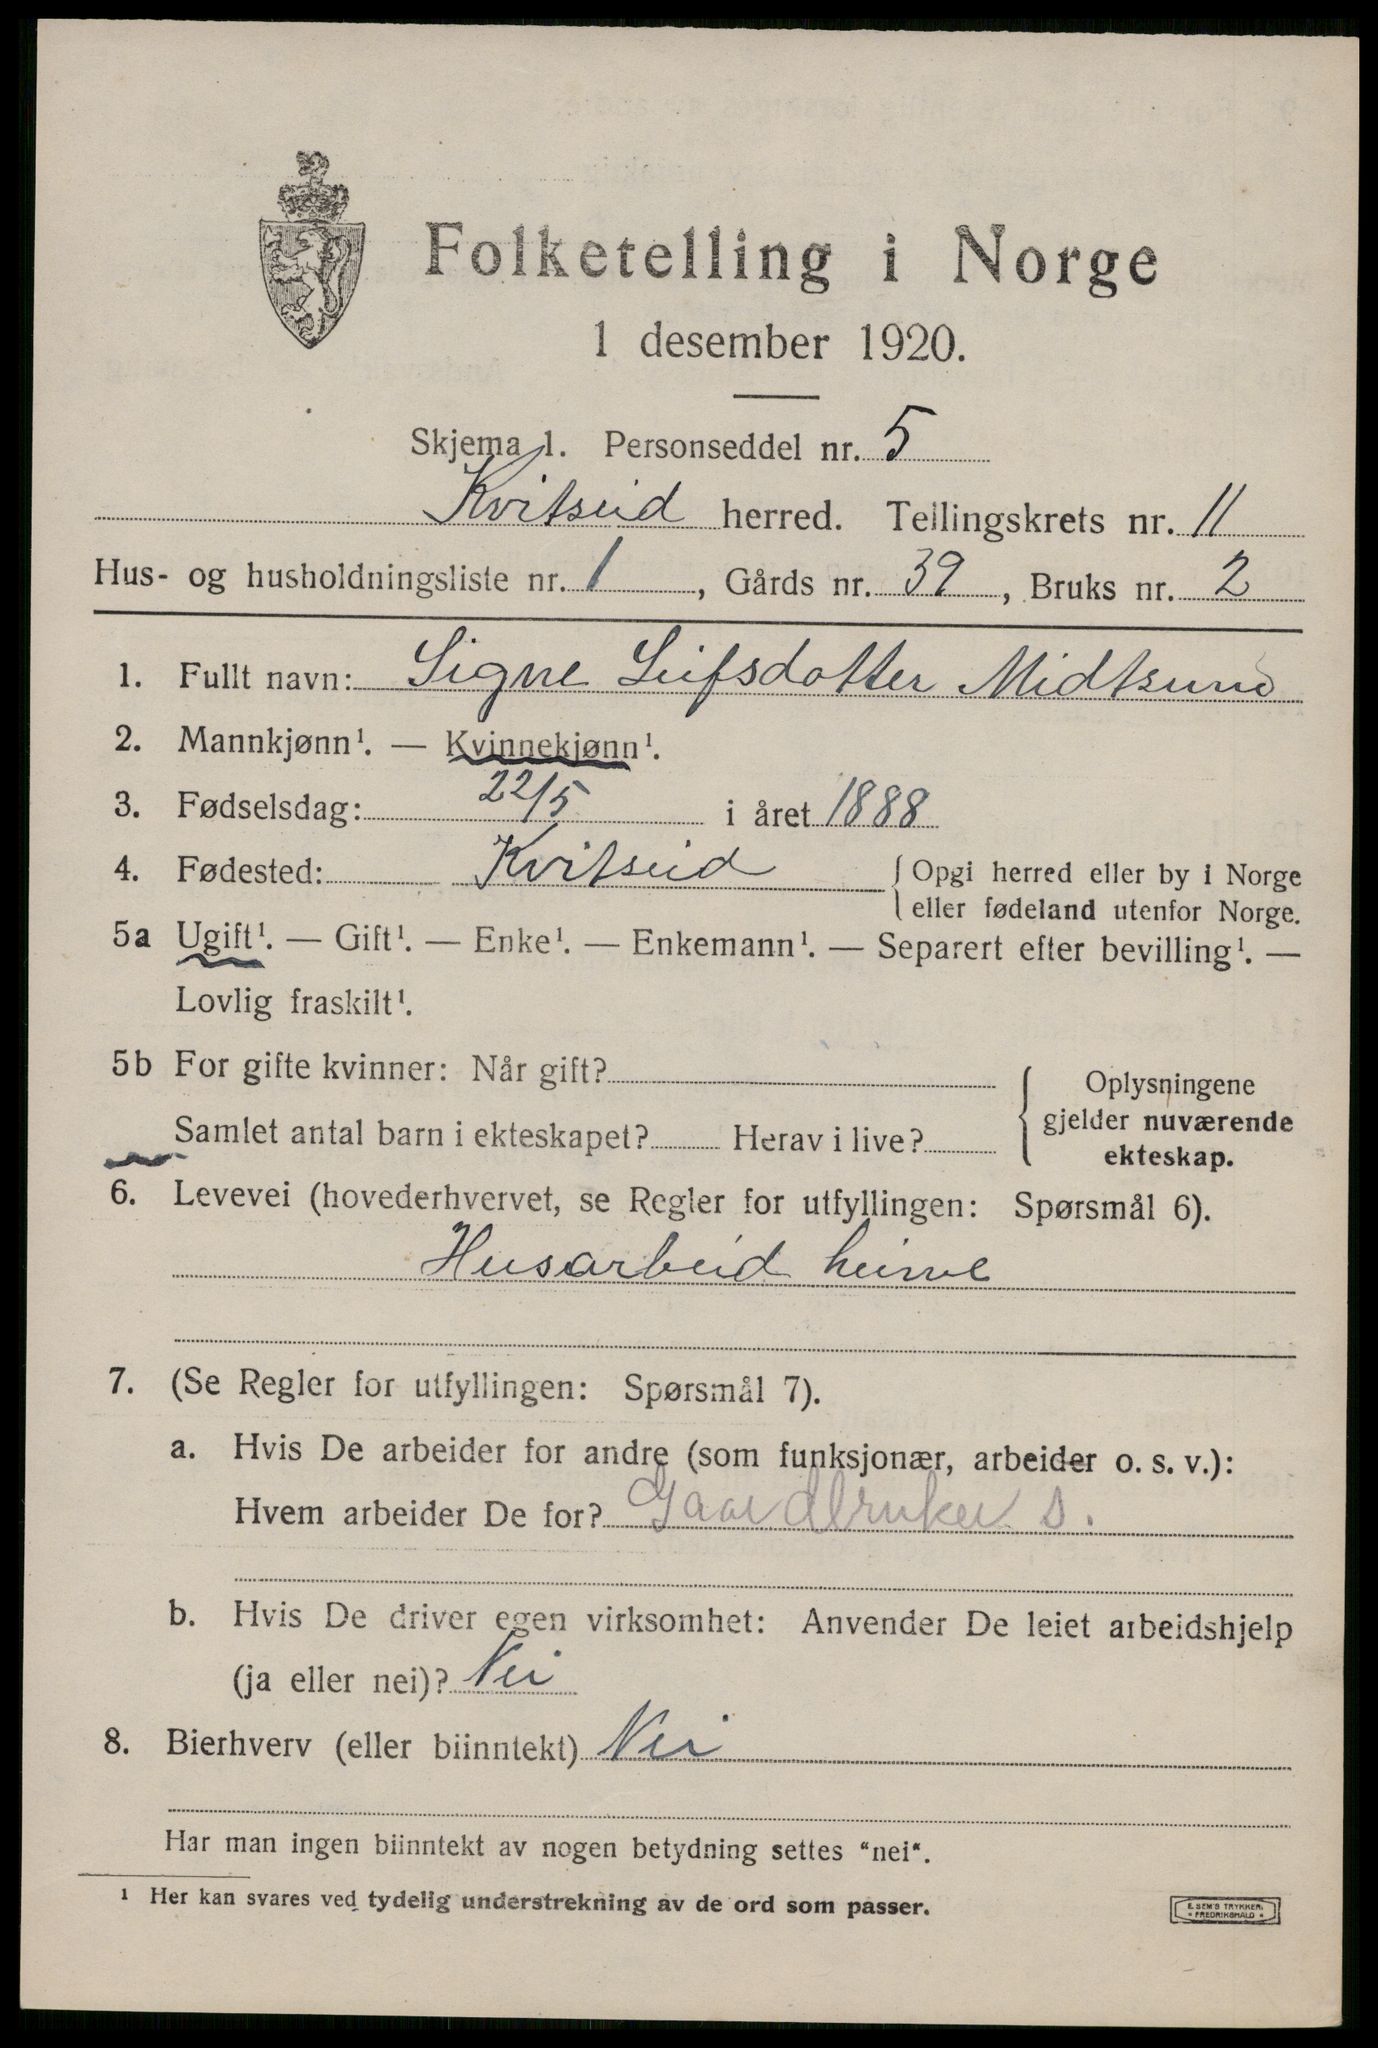 Folketelling i Norge
1 desember 1920.
Skjema 1. Personseddel nr. 5
Kvitseid herred. Tellingskrets nr. 11
Hus- og husholdningsliste nr. 1, Gårds nr. 39, Bruks nr. 2
1. Fullt navn: Signe Leifsdotter Midtsund
2. Mannkjønn¹. — Kvinnekjønn¹.
3. Fødselsdag: 22/5 i året 1888
4. Fødested: Kvitseid { Opgi herred eller by i Norge
eller fødeland utenfor Norge.
5a Ugift¹. — Gift¹. — Enke¹. — Enkemann¹. — Separert efter bevilling¹. —
Lovlig fraskilt¹.
5b For gifte kvinner: Når gift? { Oplysningene
gjelder nuværende
Samlet antal barn i ekteskapet? Herav i live?
ekteskap.
6. Levevei (hovederhvervet, se Regler for utfyllingen: Spørsmål 6).
Husarbeid heime
7. (Se Regler for utfyllingen: Spørsmål 7).
a. Hvis De arbeider for andre (som funksjonær, arbeider o. s. v.):
Hvem arbeider De for? Gaardbruker s.
b. Hvis De driver egen virksomhet: Anvender De leiet arbeidshjelp
(ja eller nei)? Nei
8. Bierhverv (eller biinntekt) Nei
Har man ingen biinntekt av nogen betydning settes "nei".
¹ Her kan svares ved tydelig understrekning av de ord som passer.
E. SEM'S TRYKKERI
* FREDRIKSHALD *